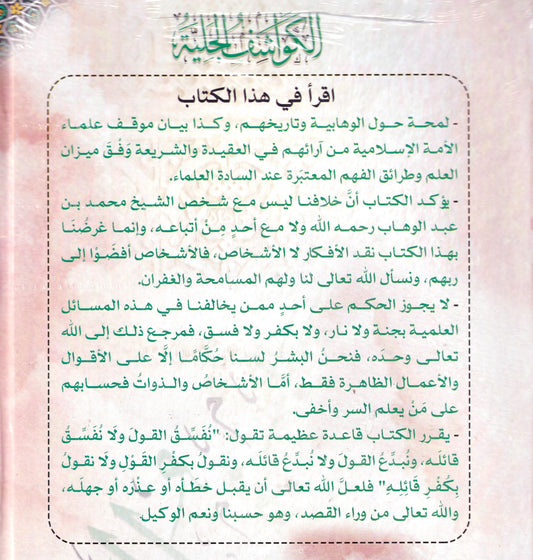 الكواشف الجلية
اقرأ في هذا الكتاب
- لمحة حول الوهابية وتاريخهم، وكذا بيان موقف علماء
الأمة الإسلامية من آرائهم في العقيدة والشريعة وَفْقَ ميزان
العلم وطرائق الفهم المعتبَرة عند السادة العلماء.
- يؤكد الكتاب أنَّ خلافنا ليس مع شخص الشيخ محمد بن
عبد الوهاب رحمه الله ولا مع أحدٍ مِنْ أتباعه، وإنما غرضُنَا
بهذا الكتاب نقد الأفكار لا الأشخاص، فالأشخاص أفضَوْا إلى
ربهم، ونسأل الله تعالى لنا ولهم المسامحة والغفران.
- لا يجوز الحكم على أحدٍ ممن يخالفنا في هذه المسائل
العلمية بجنة ولا نار، ولا بكفر ولا فسق، فمرجع ذلك إلى الله
تعالى وحدَه، فنحنُ البشرُ لسنا حُكَّامًا إلَّا على الأقوال
والأعمال الظاهرة فقط، أمَّا الأشخاصُ والذواتُ فحسابهم
على مَنْ يعلم السر وأخفى.
- يقرر الكتاب قاعدة عظيمة تقول: "نُفَسِّقُ القولَ ولا نُفَسِّقُ
قائلَه، ونُبدِّعُ القولَ ولا نُبدِّعُ قائلَه، ونقول بكفرِ القَوْلِ ولا نقولُ
بِكُفْرِ قَائِلِهِ" فلعلَّ الله تعالى أن يقبل خطأه أو عذْرَه أو جهلَه،
والله تعالى من وراء القصد، وهو حسبنا ونعم الوكيل.